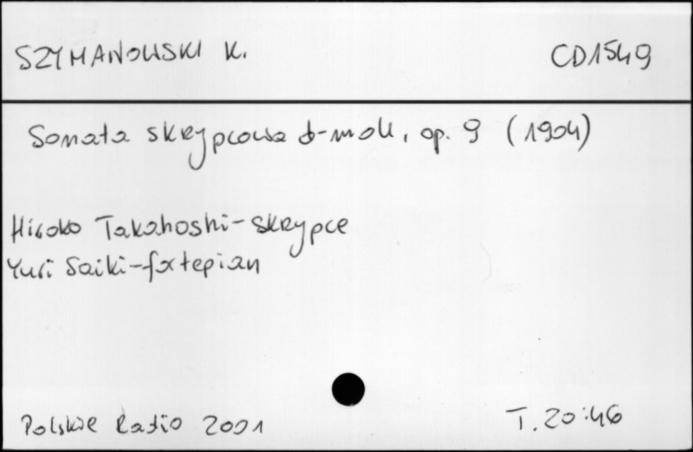 SZYMANOWSKI K. CD1549
Sonata skrzypcowa d-moll, op. 9 (1904)
Hiroko Takahoshi-skrzypce
Yuri Saiki-fortepian
Polskie Radio 2001 T. 20:46